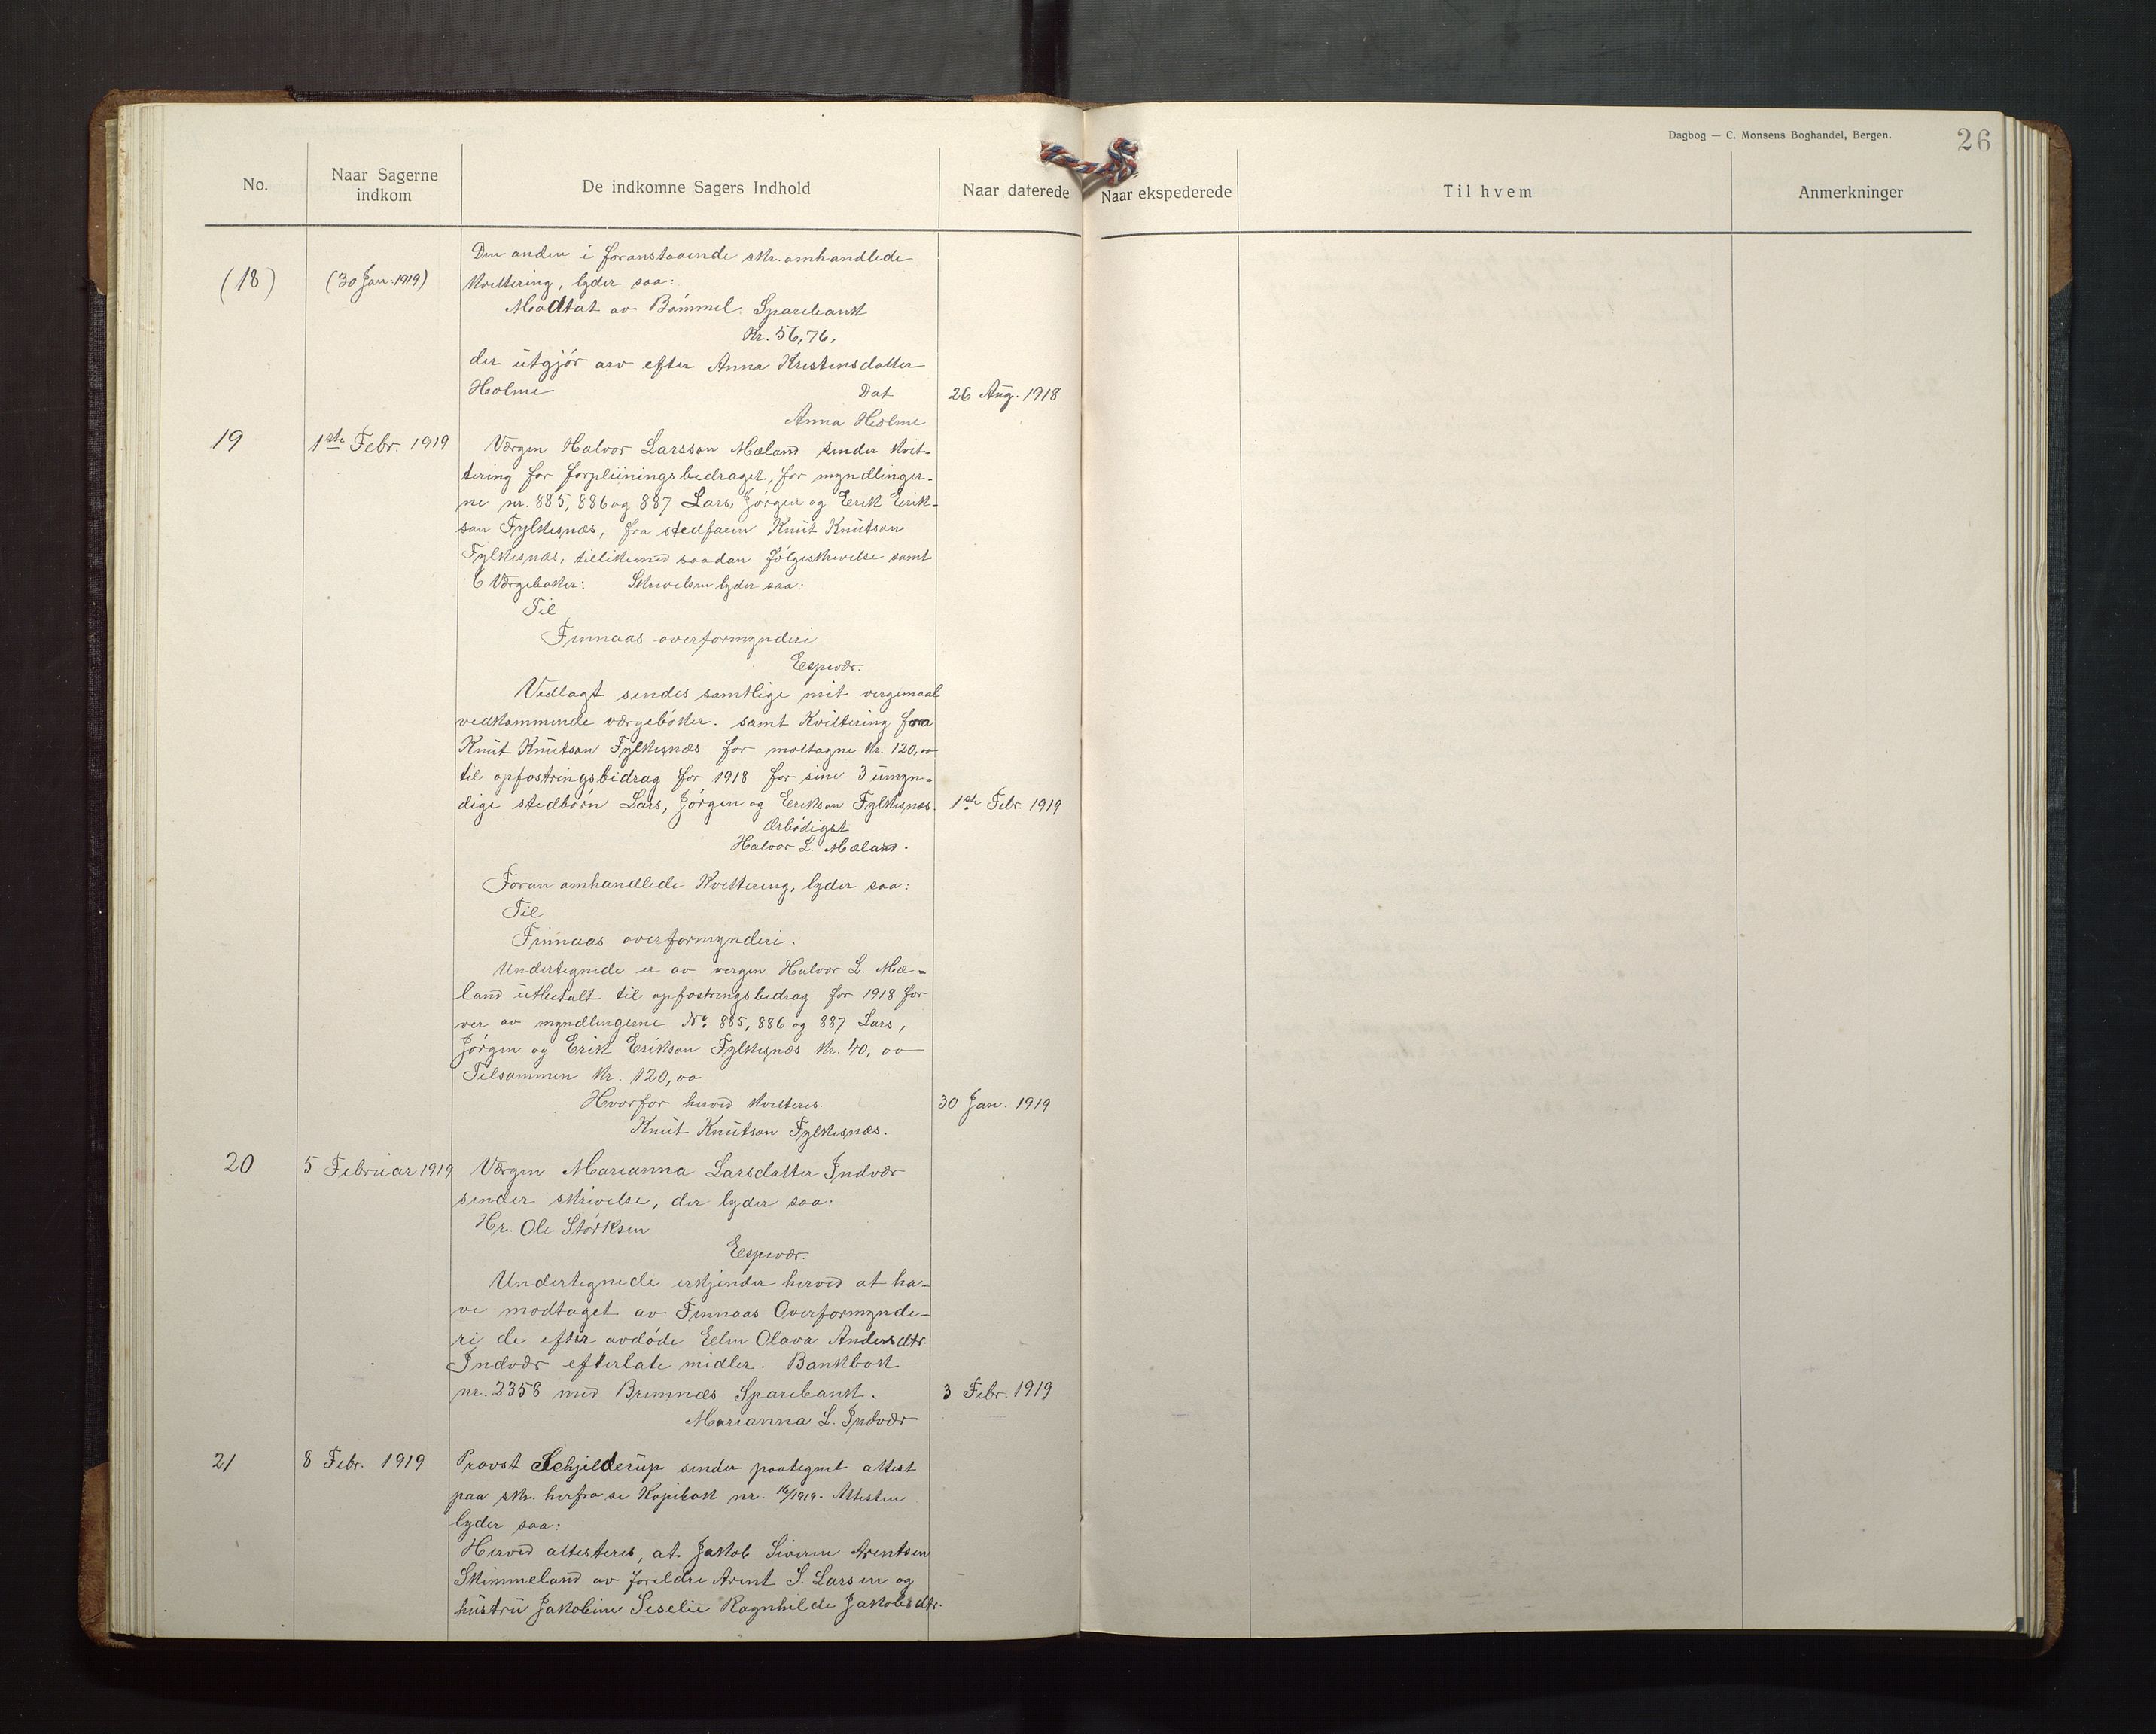 Dagbog — C. Monsens Boghandel, Bergen.
26
No.
Naar Sagerne
indkom
De indkomne Sagers Indhold
Naar daterede
Naar ekspederede
Til hvem
Anmerkninger
Den anden i foranstaaende skr. omhandlede
(18) (30 Jan. 1919) Kvittering, lyder saa:
Modtat av Bømmel. Sparebank
Kr. 56,76,
der utgjør arv efter Anna Kristensdatter
Holme Dat 26 Aug. 1918
Anna Holme
19 1ste Febr. 1919 Værgen Halvor Larsson Mæland sender Kvit-
tering for forpleiningsbedraget, for myndlinger-
ne nr. 885, 886 og 887 Lars, Jørgen og Eerik Eerik-
son Fylkesnæs, fra stedfaren Knut Knutson
Fylkesnæs, tillikemed saadan følgeskrivelse samt
6 Værgebøker: Skrivelsen lyder saa:
Til
Finnaas overformynderi
Eespevær.
Vedlagt sendes samtlige mit vergemaal
vedkommende værgebøker. samt Kvittering fra
Knut Knutson Fylkesnæs for mottagne Kr. 120,00
til opfostringsbidrag for 1918 for sine 3 umyn-
dige stedbørn Lars, Jørgen og Eerikson Fylkesnæs. 1ste Febr. 1919
Ærbødigst
Halvor L. Mæland.
Foran omhandlede Kvittering, lyder saa:
Til
Finnaas overformynderi.
Undertegnede er av vergen Halvor L. Mæ-
land utbetalt til opfostringsbedrag for 1918 for
ver av myndlingerne No. 885, 886 og 887 Lars,
Jørgen og Erik Erikson Fylkesnæs Kr. 40,00
Tilsammen Kr. 120,00
Hvorfor herved Kvitteres. 30 Jan. 1919
Knut Knutson Fylkesnæs.
20 5 Februar 1919 Værgen Marianna Larsdatter Indvær
sender skrivelse, der lyder saa:
Hr. Ole Størksen
Eespevær.
Undertegnede erkjender herved at ha-
ve modtaget av Finnaas Overformynde-
ri de efter avdøde Ellen Olava Andersdtr.
Indvær efterlate midler. Bankbok
nr. 2358 med Bremnæs Sparebank. 3 Febr. 1919
Marianna L. Indvær
21 8 Febr. 1919 Provst Schjelderup sender paategnet attest
paa skr. herfra se Kopibok nr. 16/1919. Attesten
lyder saa:
Herved attesteres, at Jakob Siverin Arentsen
Skimmeland av foreldre Arent S. Larsen og
hustru Jakobine Seselie Ragnhilde Jakobsdtr.